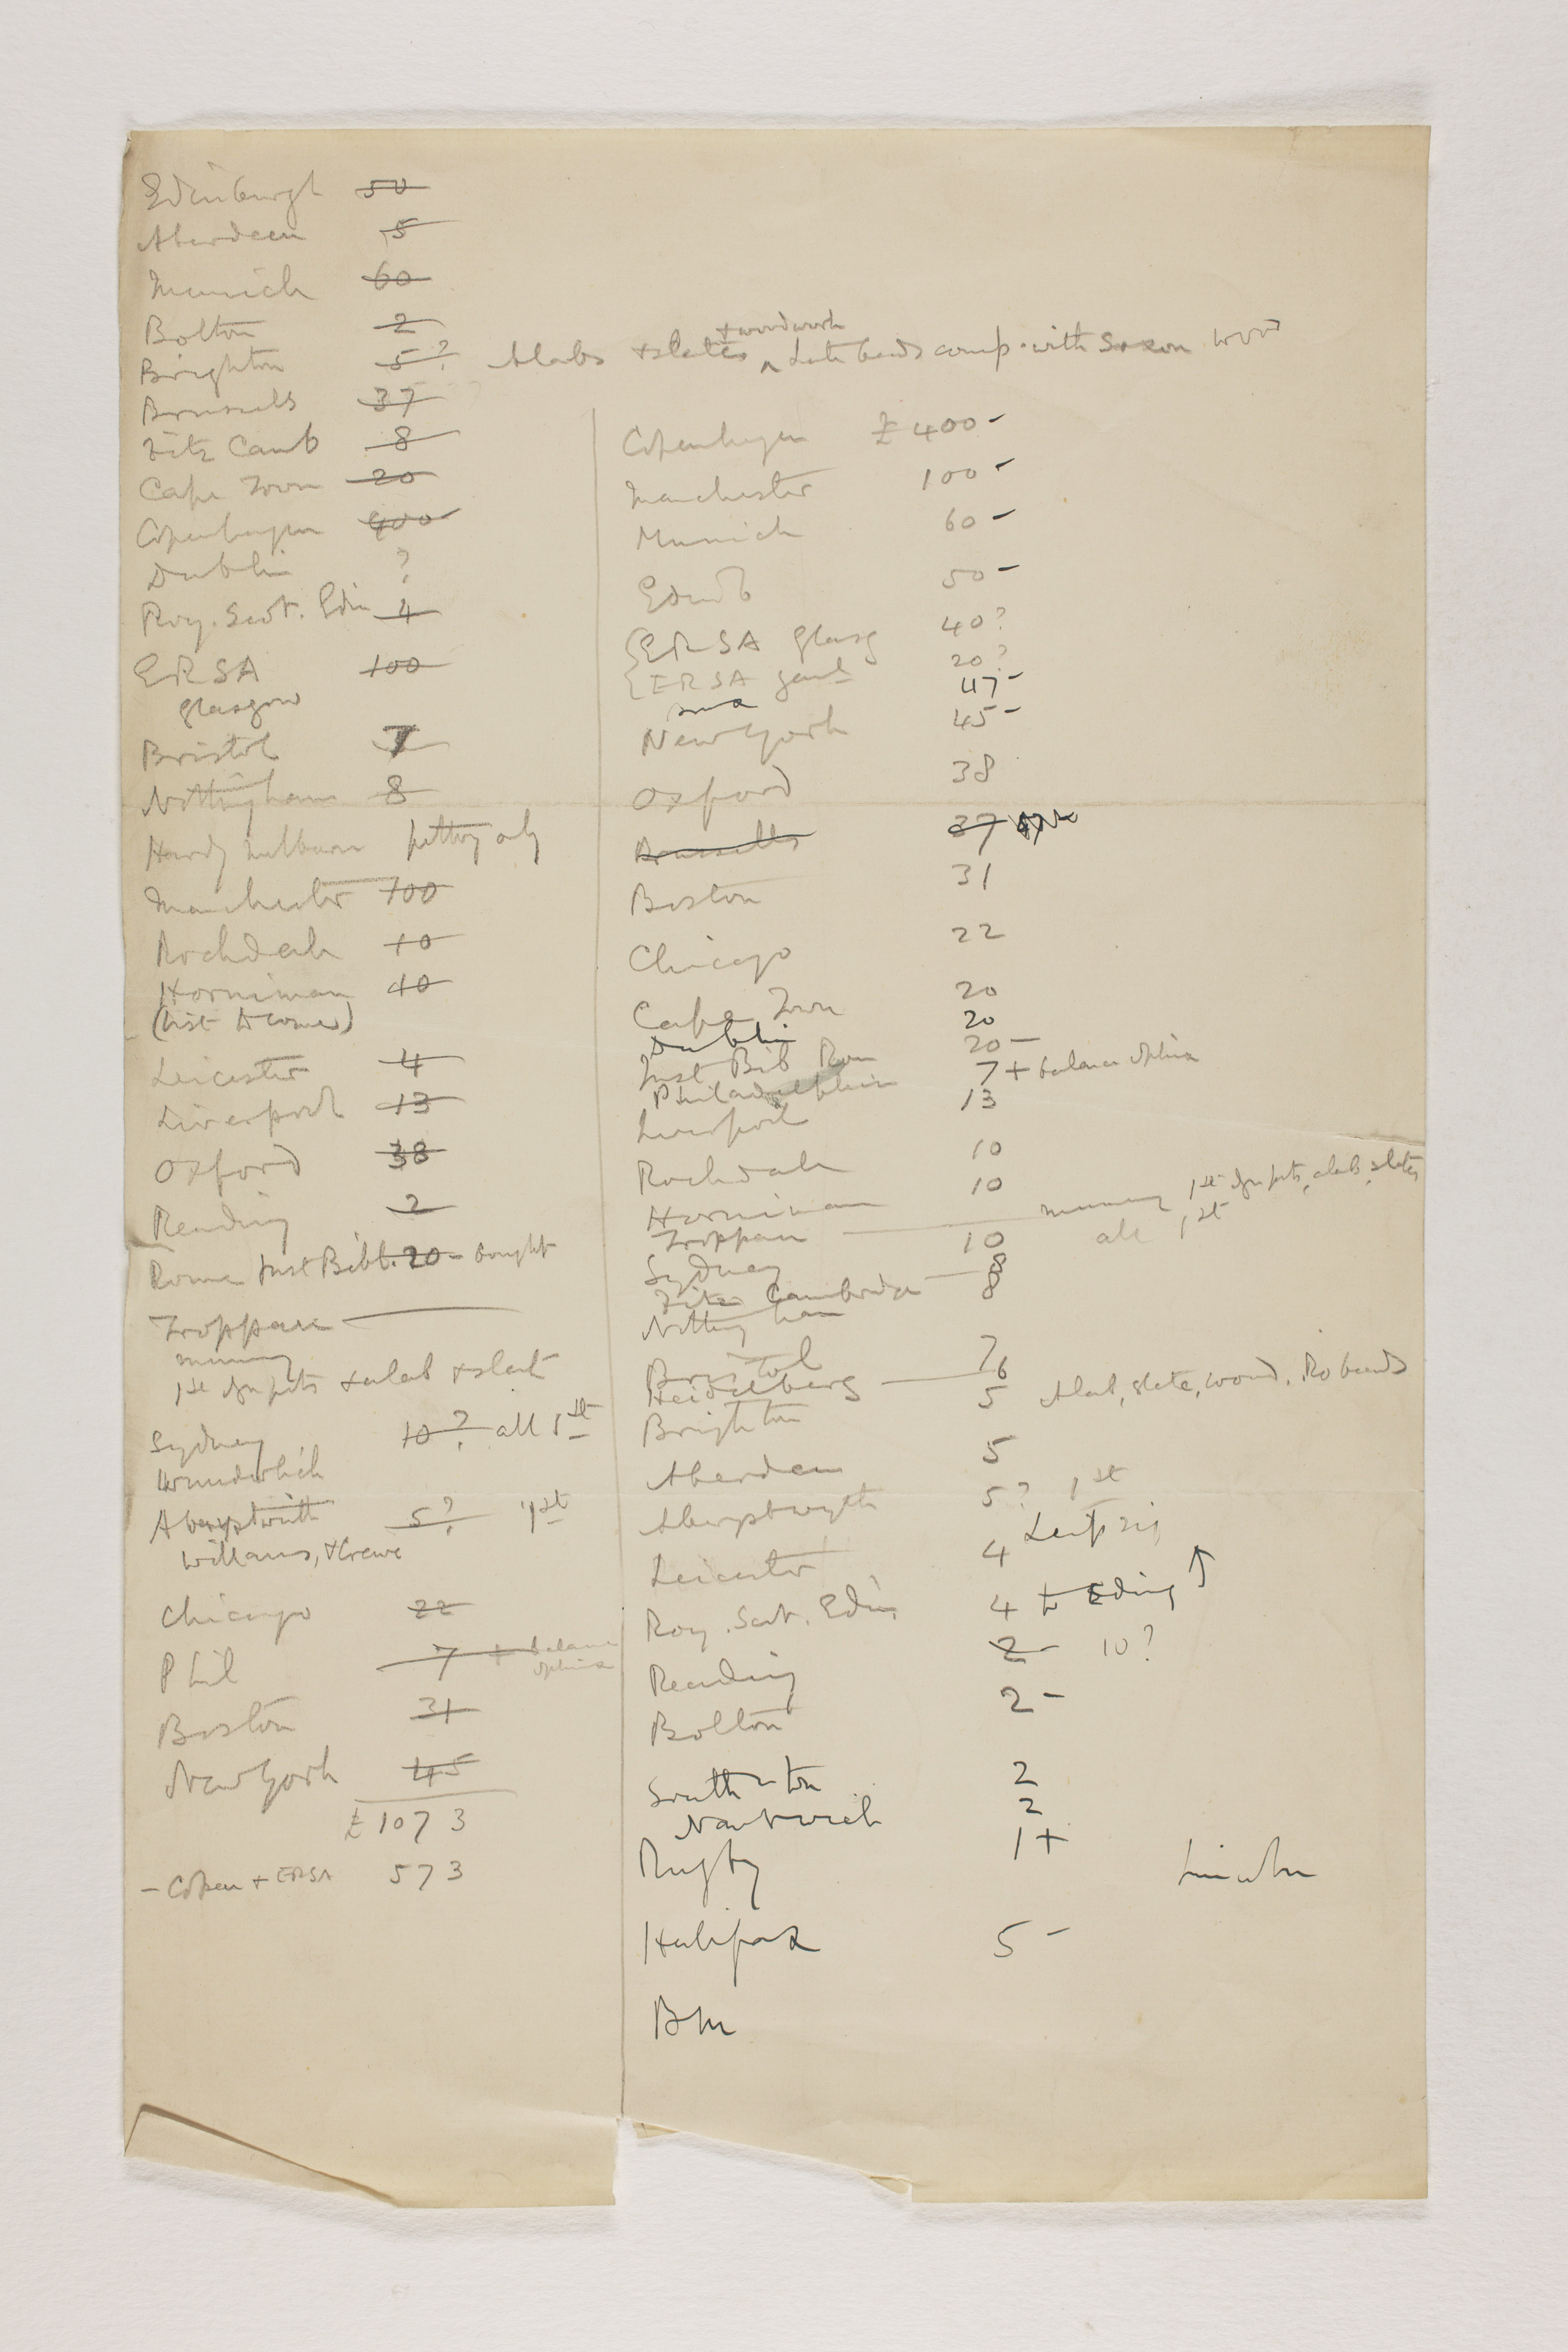 Edinburgh 50
Aberdeen 5
Munich 60
Bolton 2
Brighton 5? Alabs & slates & woodwork Late beads comp. with Saxon wood
Brussels 37
Fitz Camb 8
Cape Town 20
Copenhagen 400
Dublin ?
Roy. Scot. Edin 4
ERSA 100
Glasgow
Bristol 7
Nottingham 8
Hardy Milburn pottery only
Manchester 100
Rochdale 10
Horniman 10
(List to come)
Leicester 4
Liverpool 13
Oxford 38
Reading 2
Rome Inst Bibl. 20 - bought
Troppau
mummy
1st dyn pots & alab & slat
Sydney 10? all 1st
Wunderlich
Aberystwith 5? 1st
Williams, & Crewe
Chicago 22
Phil 7 + balance
Boston 31
New York 45
£1073
- Copen + ERSA 573
Copenhagen £400-
Manchester 100-
Munich 60-
Edinb 50-
ERSA Glasg 40?
ERSA genl 20?
47-
New York 45-
Oxford 38
Brussells 37
Boston 31
Chicago 22
Cape Town 20
Dublin 20
Inst Bib Rom 20-
Philadelphia 7 + balance
Liverpool 13
Rochdale 10
Horniman 10
Troppau mummy 1st dyn pots, alab, slates
Sydney 10 all 1st
Fitz Cambridge 8
Nottingham 8
Bristol 7
Heidelberg 6
Brighton 5 Alab, slate, wood, Ro beads
Aberdeen 5
Aberystwyth 5? 1st
Leipzig
Leicester 4
Roy. Scot. Edin 4
Reading 2 10?
Bolton 2-
South-ton 2
Nantwich 2
Rugby 1+
Lincoln
Halifax 5-
BM